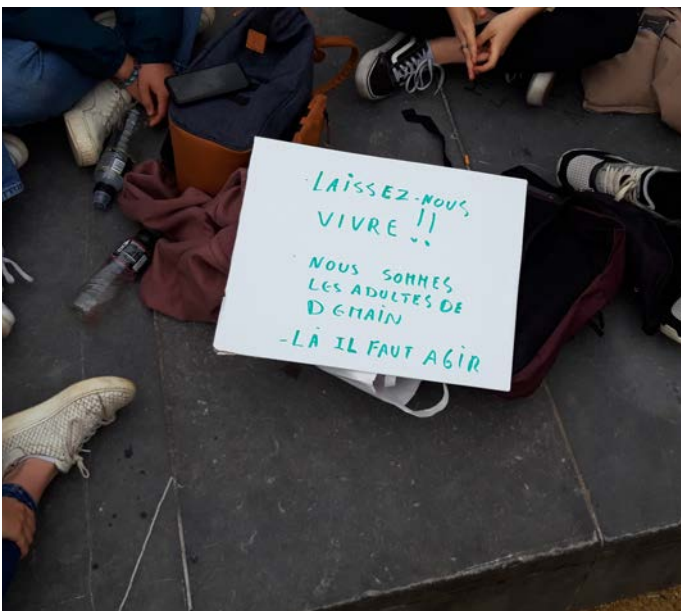 - LAISSEZ-NOUS
VIVRE !!
- NOUS SOMMES
LES ADULTES DE
DEMAIN
- LÀ IL FAUT AGIR